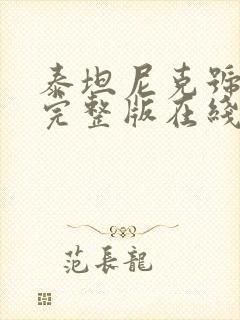 泰坦尼克號
完整版在綫
范長龍